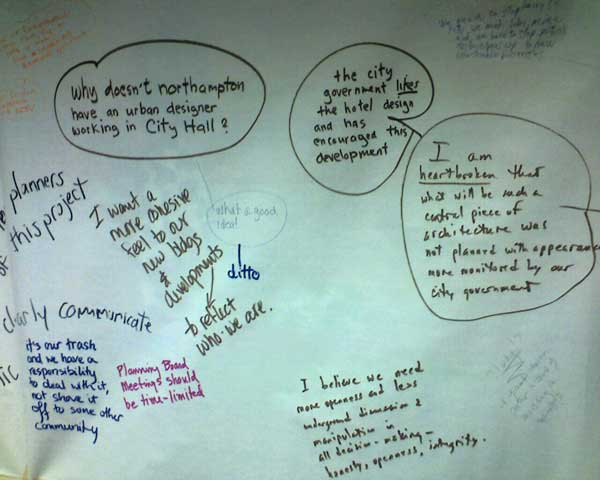 Why doesn't northampton
have an urban designer
working in City Hall?
the city
government likes
the hotel design
and has
encouraged this
development
I am
heartbroken that
what will be such a
central piece of
architecture was
not planned with appearance
more monitored by our
city government
planners
this project
of
I want a
more cohesive
feel to our
new bldgs
&
developments
to reflect
who we are.
What a good
idea!
ditto
clarly communicate
tic
it's our trash
and we have a
responsibility
to deal with it,
not shove it
off to some other
community
Planning Board
Meetings should
be time-limited
I believe we need
more openness and less
underground discussion &
manipulation in
all decision-making—
honesty, openness, integrity.